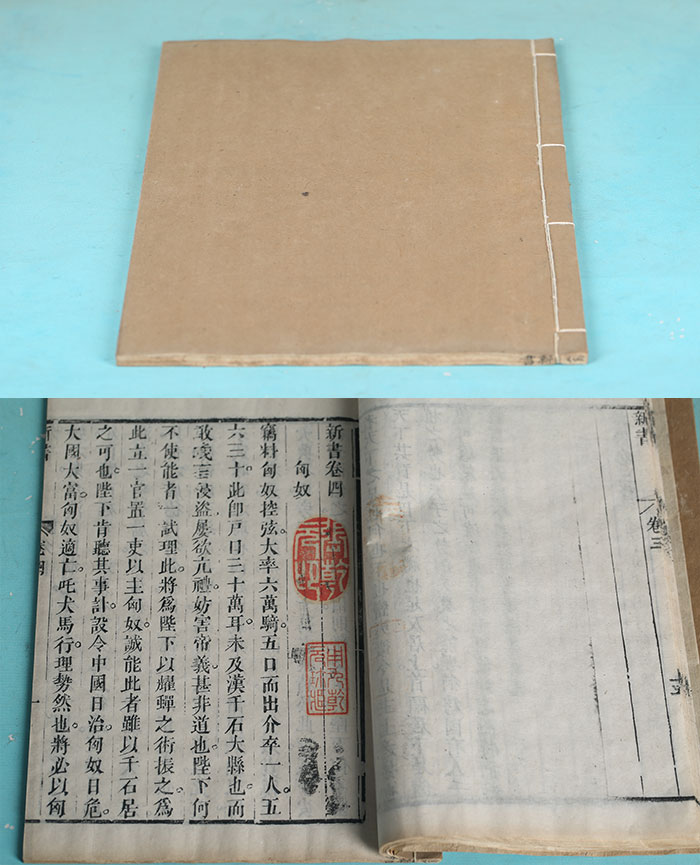 新書卷四
匈奴
竊料匈奴控弦大率六萬騎。五口而出介卒一人。五
六三十。此卽戶口三十萬耳。未及漢千石大縣也。而
敢歲言侵盜。屢欲亢禮妨害帝義。甚非道也。陛下何
不使能者一試理此。將爲陛下以耀蟬之術振之。爲
此立一官置一吏以主匈奴。誠能此者。雖以千石居
之可也。陛下肯聽其事計。設令中國日治。匈奴日危。
大國大富。匈奴適亡。吒犬馬行。理勢然也。將必以匈
新書
卷四
新書
卷三